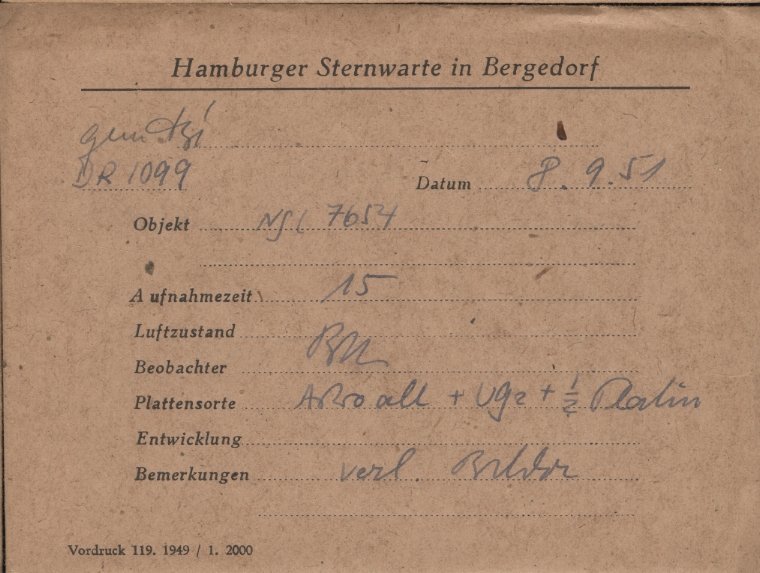 Hamburger Sternwarte in Bergedorf
DR 1099
Datum 8.9.51
Objekt NGC 7654
Aufnahmezeit 15
Luftzustand
Beobachter
Plattensorte Astro alt + Ug2 + 1/2 Platin
Entwicklung
Bemerkungen verl. Bilder
Vordruck 119. 1949 / 1. 2000